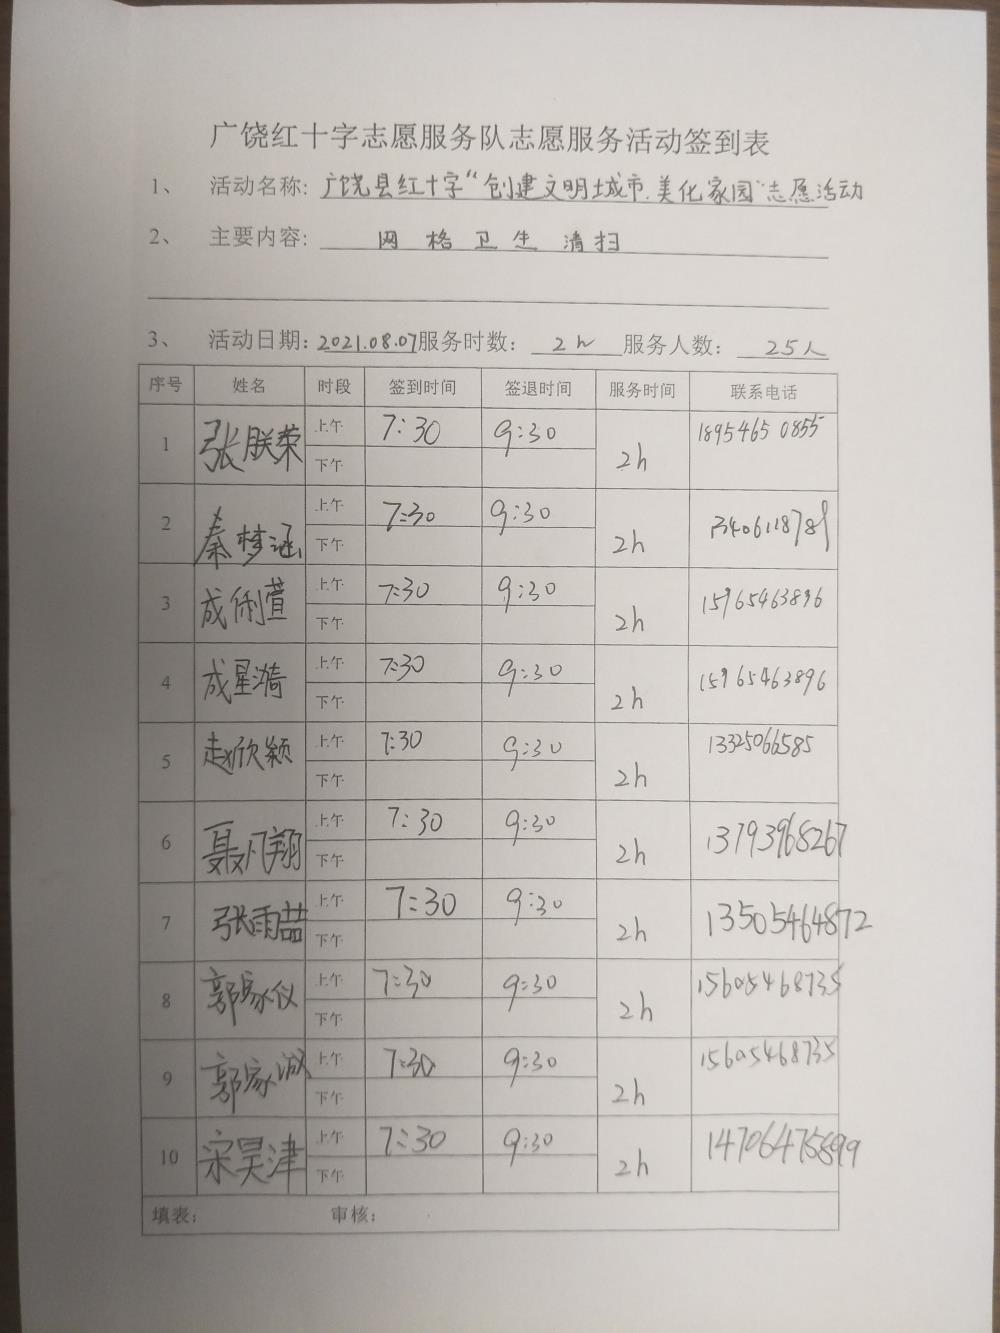 广饶红十字志愿服务队志愿服务活动签到表
1、 活动名称: 广饶县红十字“创建文明城市.美化家园”志愿活动
2、 主要内容: 网格卫生清扫
3、 活动日期: 2021.08.07 服务时数: 2h 服务人数: 25人
序号 姓名 时段 签到时间 签退时间 服务时间 联系电话
1 张朕荣 上午 7:30 9:30 2h 18954650855
下午
2 秦梦涵 上午 7:30 9:30 2h 13406118789
下午
3 成俐萱 上午 7:30 9:30 2h 15965463896
下午
4 成星漪 上午 7:30 9:30 2h 15965463896
下午
5 赵欣颖 上午 7:30 9:30 2h 13325066585
下午
6 聂凡翔 上午 7:30 9:30 2h 13793968267
下午
7 张雨喆 上午 7:30 9:30 2h 13505464872
下午
8 郭家仪 上午 7:30 9:30 2h 15605468735
下午
9 郭家诚 上午 7:30 9:30 2h 15605468735
下午
10 宋昊津 上午 7:30 9:30 2h 14706475899
下午
填表: 审核: